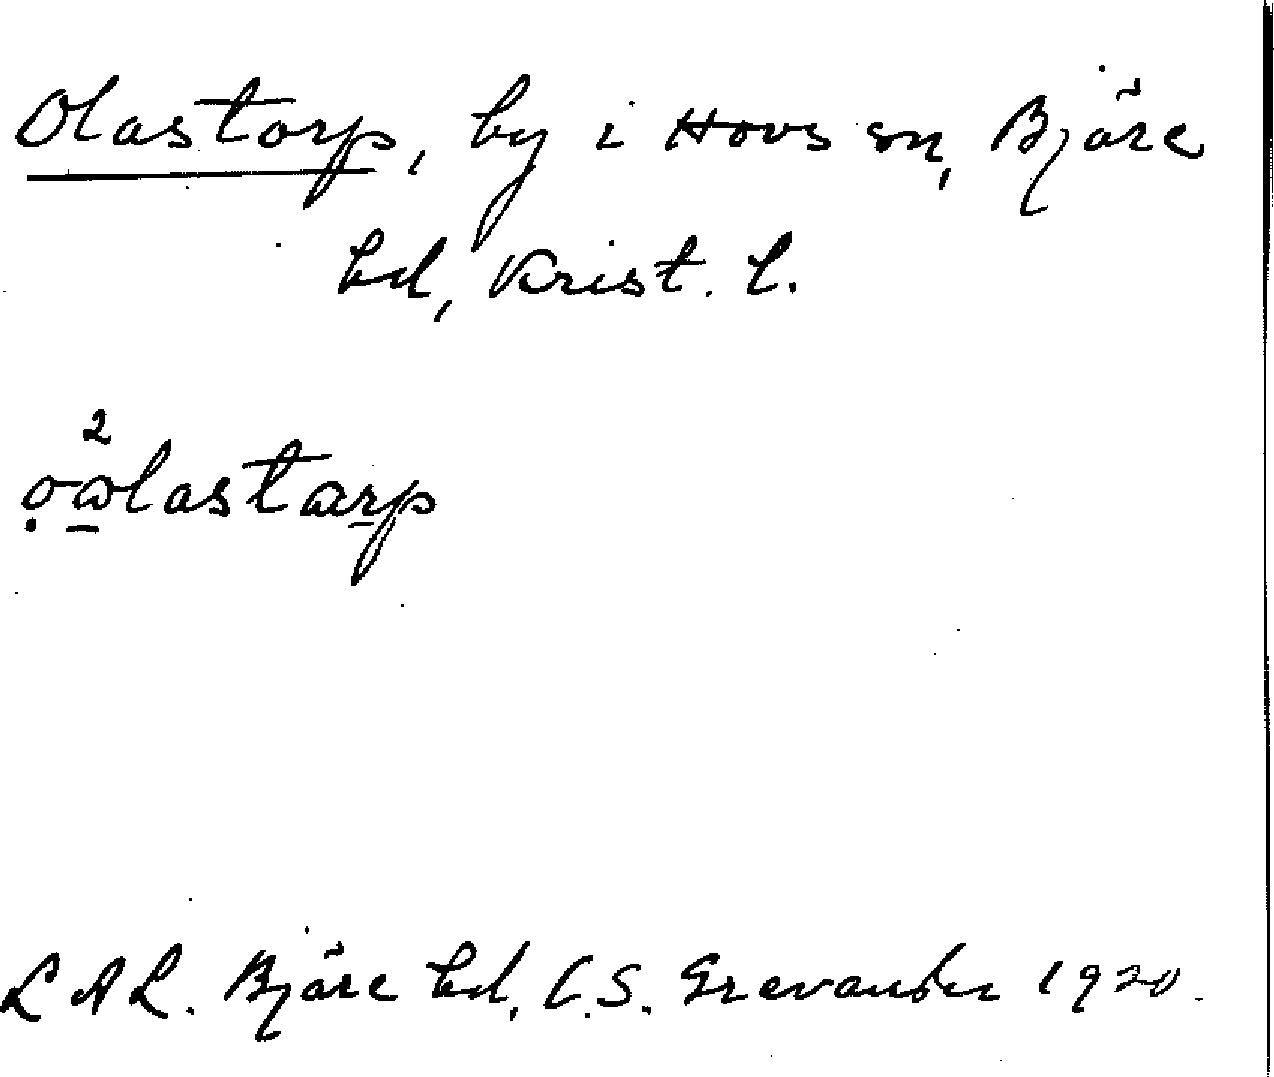 Olastorp, by i Hovs sn, Bjäre
hd, Krist. l.
2
o̤ω̱lastar̲p
LAL. Bjäre hd, C.S. Grevander 1920.